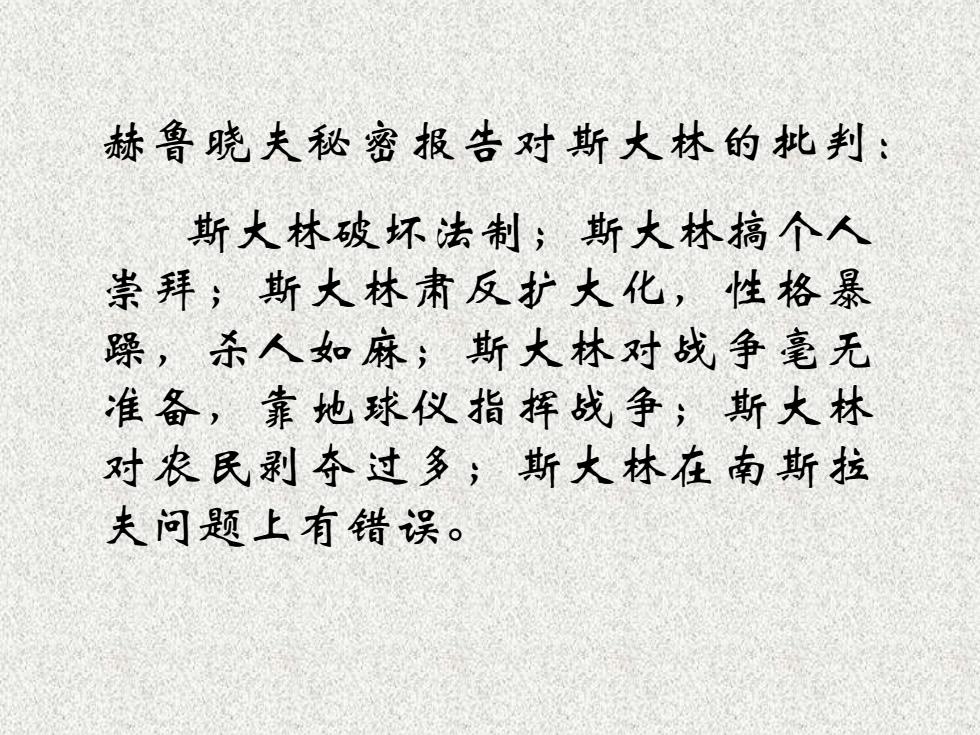 赫鲁晓夫秘密报告对斯大林的批判：
斯大林破坏法制；斯大林搞个人
崇拜；斯大林肃反扩大化，性格暴
躁，杀人如麻；斯大林对战争毫无
准备，靠地球仪指挥战争；斯大林
对农民剥夺过多；斯大林在南斯拉
夫问题上有错误。